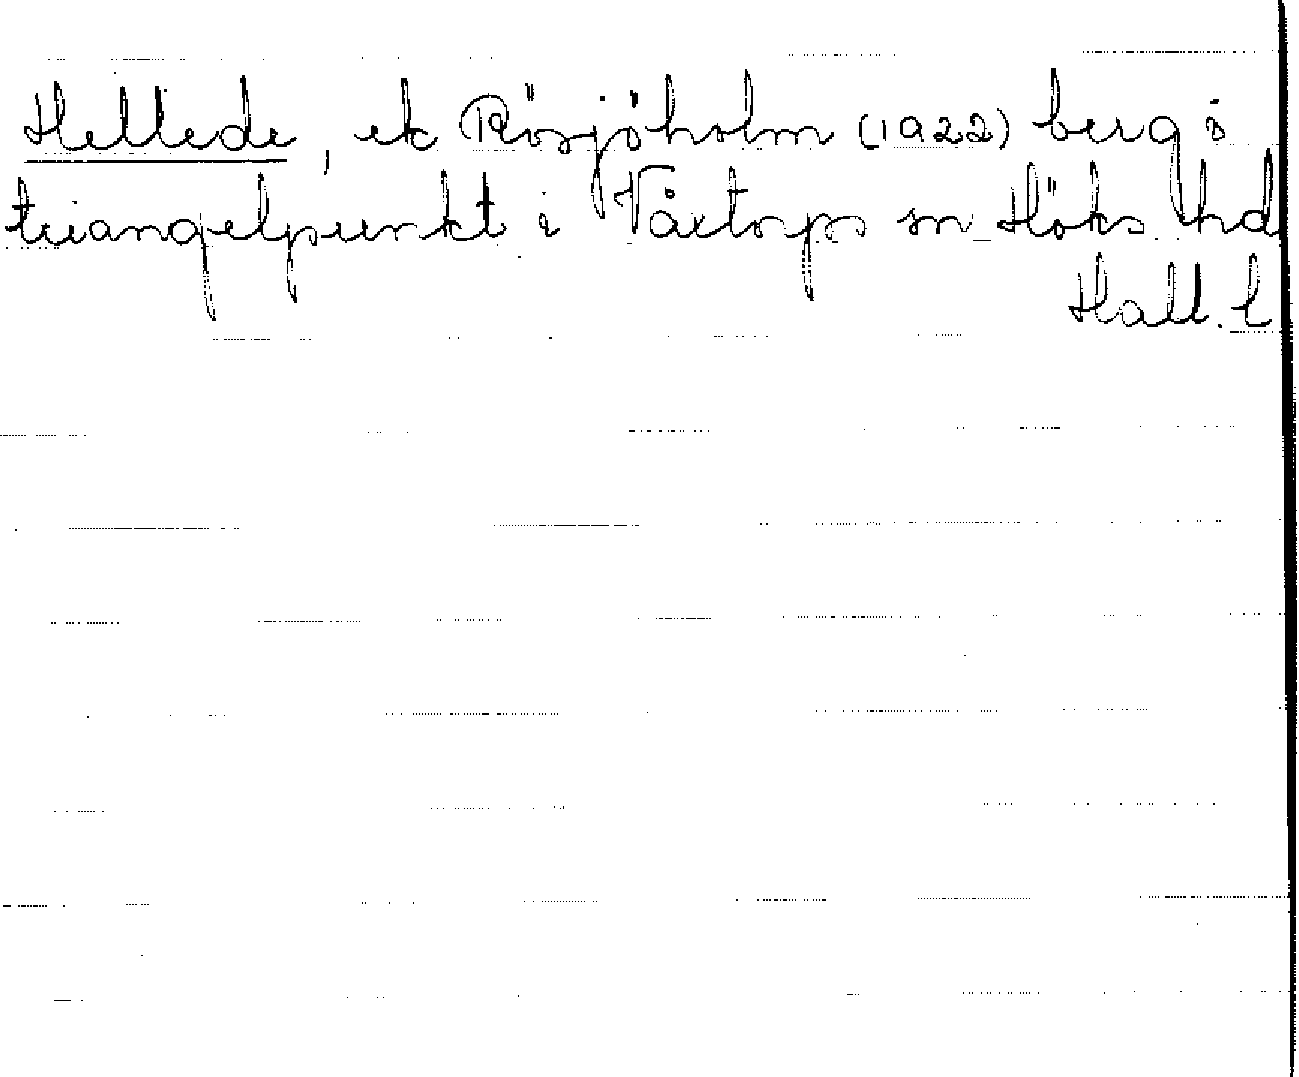 Hellede, ek Rösjöholm (1922) berg;
triangelpunkt i Våxtorps sn Höks hd
Hall. l